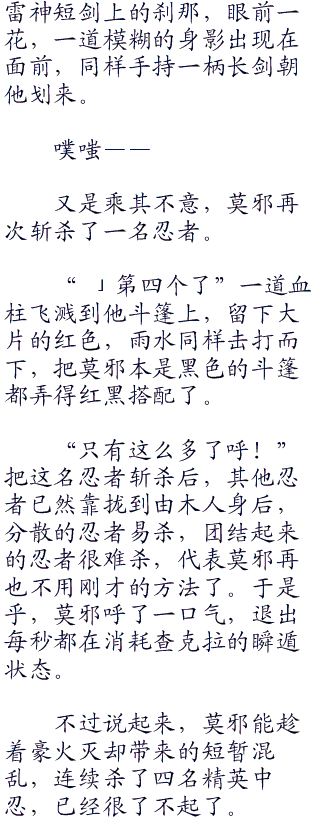 雷神短剑上的刹那，眼前一
花，一道模糊的身影出现在
面前，同样手持一柄长剑朝
他划来。
噗嗤——
又是乘其不意，莫邪再
次斩杀了一名忍者。
“ 」第四个了”一道血
柱飞溅到他斗篷上，留下大
片的红色，雨水同样击打而
下，把莫邪本是黑色的斗篷
都弄得红黑搭配了。
“只有这么多了呼！”
把这名忍者斩杀后，其他忍
者已然靠拢到由木人身后，
分散的忍者易杀，团结起来
的忍者很难杀，代表莫邪再
也不用刚才的方法了。于是
乎，莫邪呼了一口气，退出
每秒都在消耗查克拉的瞬遁
状态。
不过说起来，莫邪能趁
着豪火灭却带来的短暂混
乱，连续杀了四名精英中
忍，已经很了不起了。